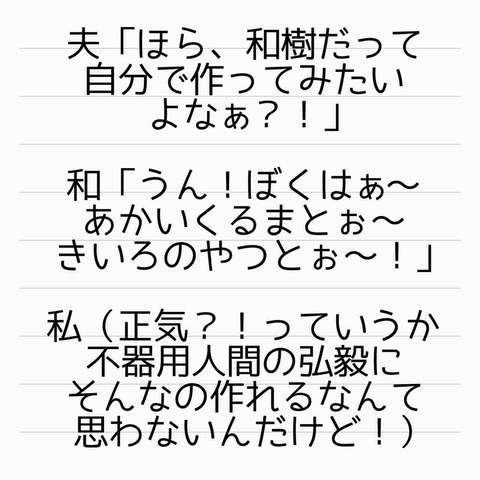 夫「ほら、和樹だって
自分で作ってみたい
よなぁ？！」
和「うん！ぼくはぁ〜
あかいくるまとぉ〜
きいろのやつとぉ〜！」
私（正気？！っていうか
不器用人間の弘毅に
そんなの作れるなんて
思わないんだけど！）